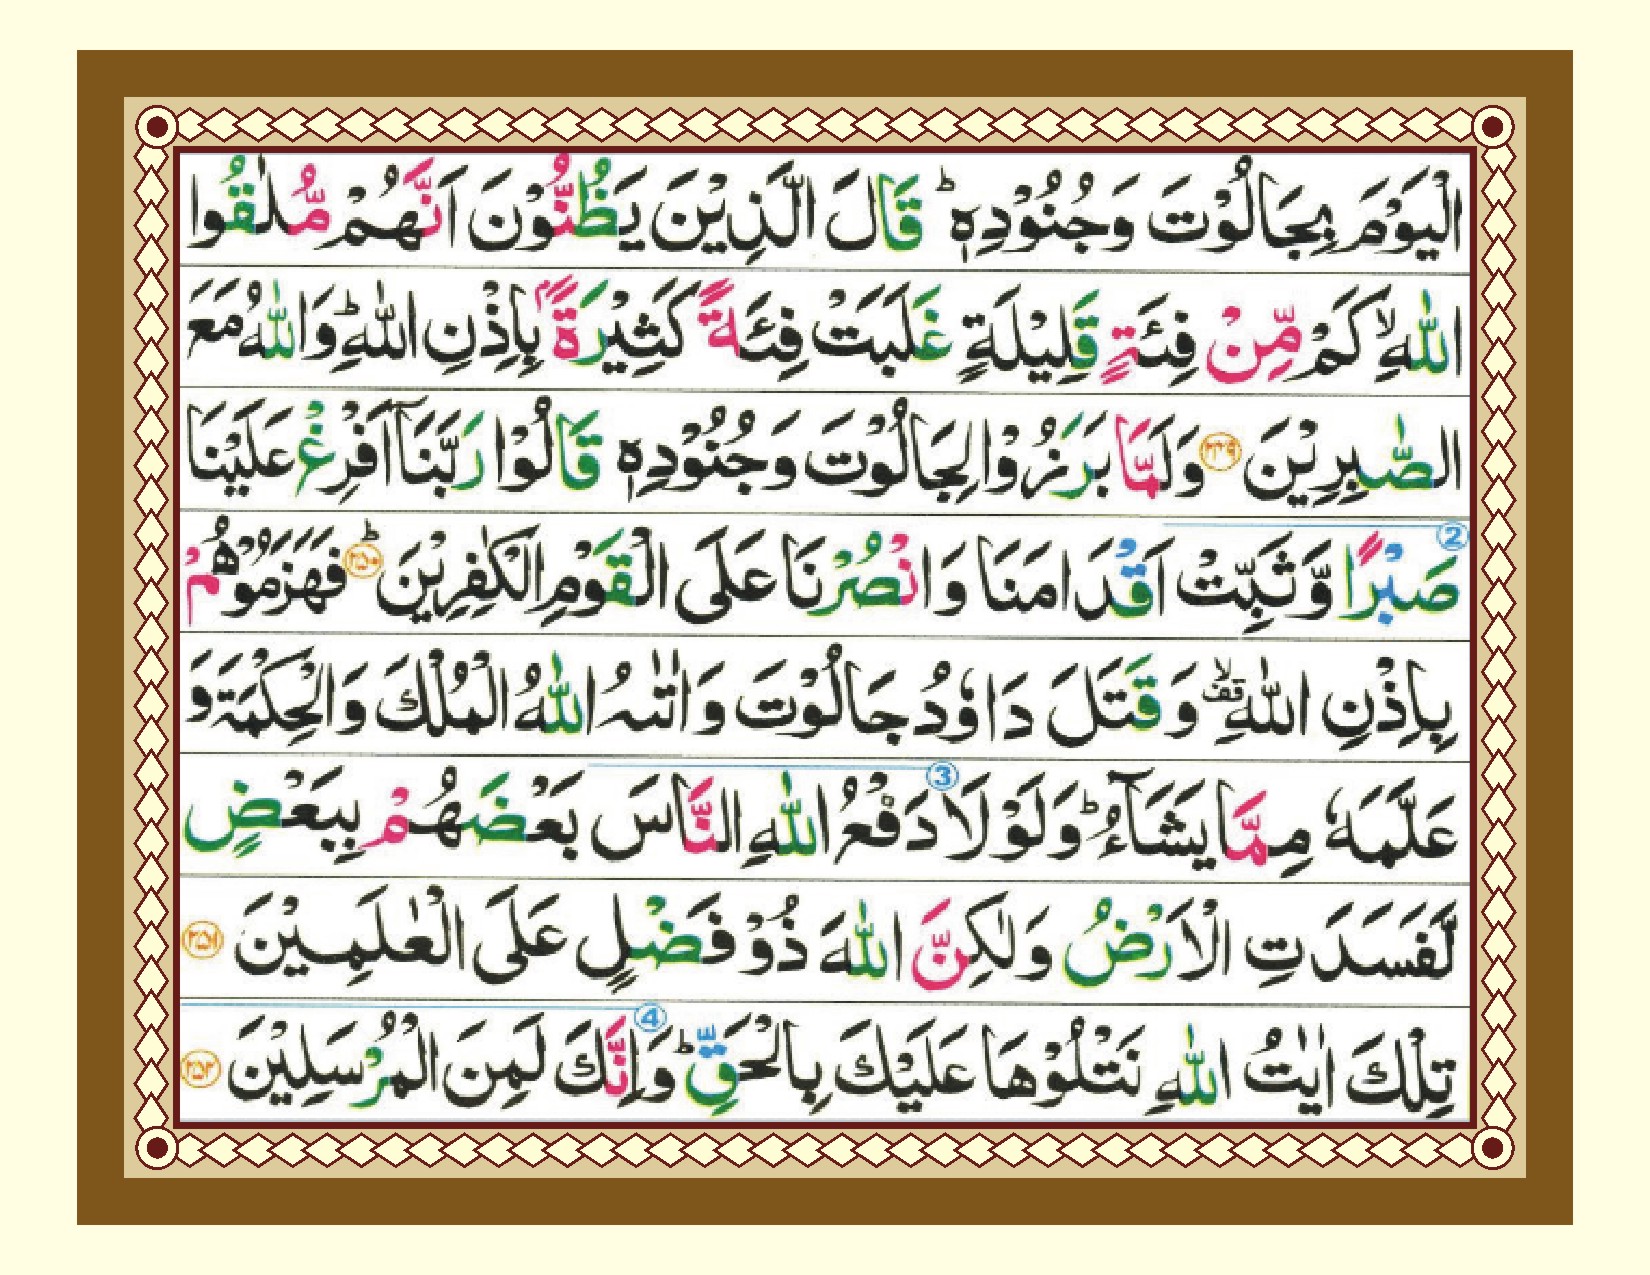 الْيَوْمَ بِجَالُوْتَ وَجُنُوْدِهٖ ؕ قَالَ الَّذِيْنَ يَظُنُّوْنَ اَنَّهُمْ مُّلٰقُوا
اللّٰهِ ۙ كَمْ مِّنْ فِئَةٍ قَلِيْلَةٍ غَلَبَتْ فِئَةً كَثِيْرَةًۢ بِاِذْنِ اللّٰهِ ؕ وَاللّٰهُ مَعَ
الصّٰبِرِيْنَ ﴿۲۴۹﴾ وَلَمَّا بَرَزُوْا لِجَالُوْتَ وَجُنُوْدِهٖ قَالُوْا رَبَّنَاۤ اَفْرِغْ عَلَيْنَا
2
صَبْرًا وَّثَبِّتْ اَقْدَامَنَا وَانْصُرْنَا عَلَى الْقَوْمِ الْكٰفِرِيْنَ ؕ﴿۲۵۰﴾ فَهَزَمُوْهُمْ
بِاِذْنِ اللّٰهِ ۙقف وَقَتَلَ دَاوٗدُ جَالُوْتَ وَاٰتٰىهُ اللّٰهُ الْمُلْكَ وَالْحِكْمَةَ وَ
3
عَلَّمَهٗ مِمَّا يَشَآءُ ؕ وَلَوْ لَا دَفْعُ اللّٰهِ النَّاسَ بَعْضَهُمْ بِبَعْضٍ
لَّفَسَدَتِ الْاَرْضُ وَلٰكِنَّ اللّٰهَ ذُوْ فَضْلٍ عَلَى الْعٰلَمِيْنَ ﴿۲۵۱﴾
4
تِلْكَ اٰيٰتُ اللّٰهِ نَتْلُوْهَا عَلَيْكَ بِالْحَقِّ ؕ وَاِنَّكَ لَمِنَ الْمُرْسَلِيْنَ ﴿۲۵۲﴾